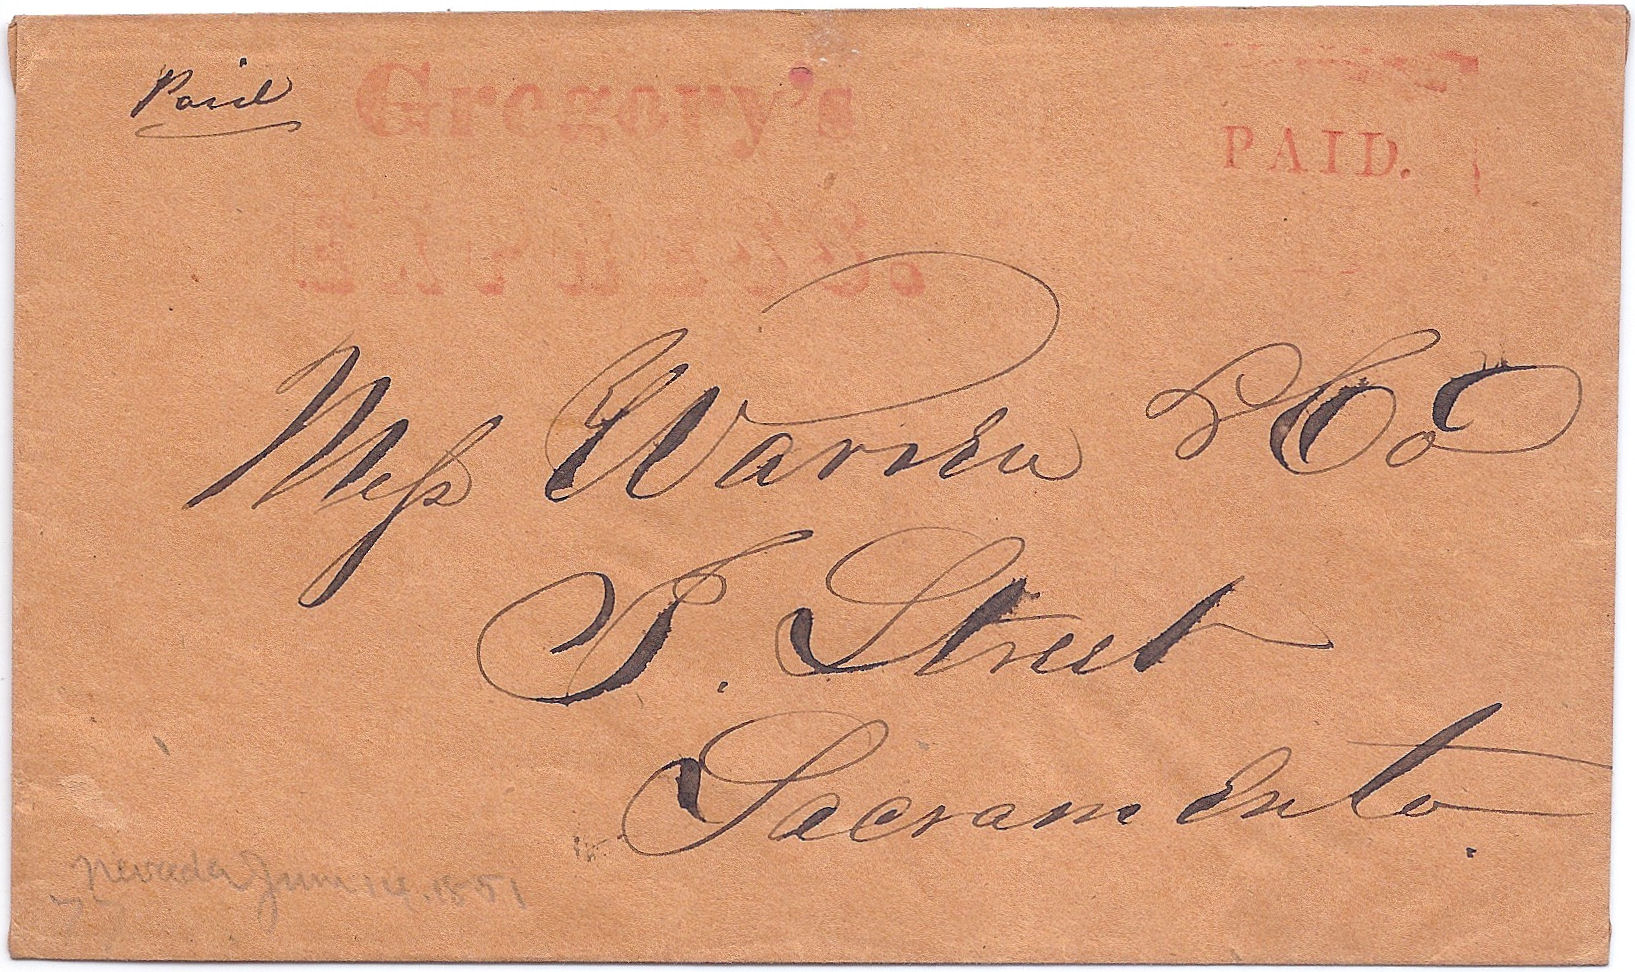 Paid
Gregory's
EXPRESS.
PAID.
Mess Warren & Co
J. Street
Sacramento.
Nevada June 14. 1851